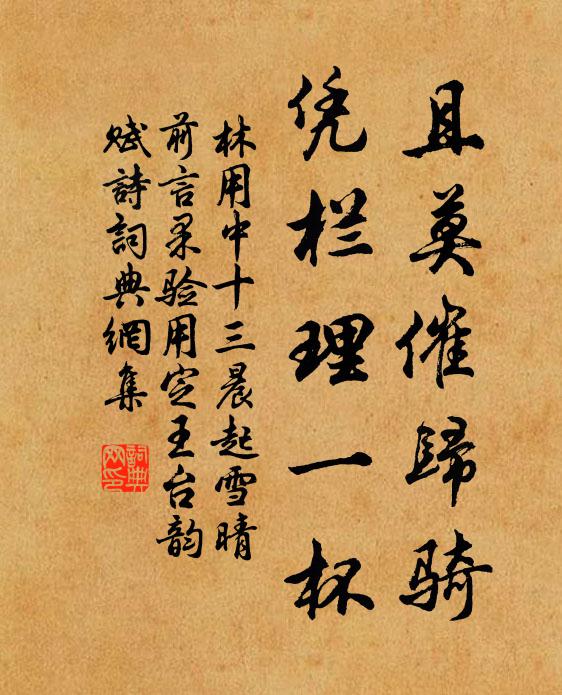 且莫催歸骑
凭栏理一杯
林用中十三晨起雪晴
前言果验用定王台韵
赋詩詞典網集
詞典网印